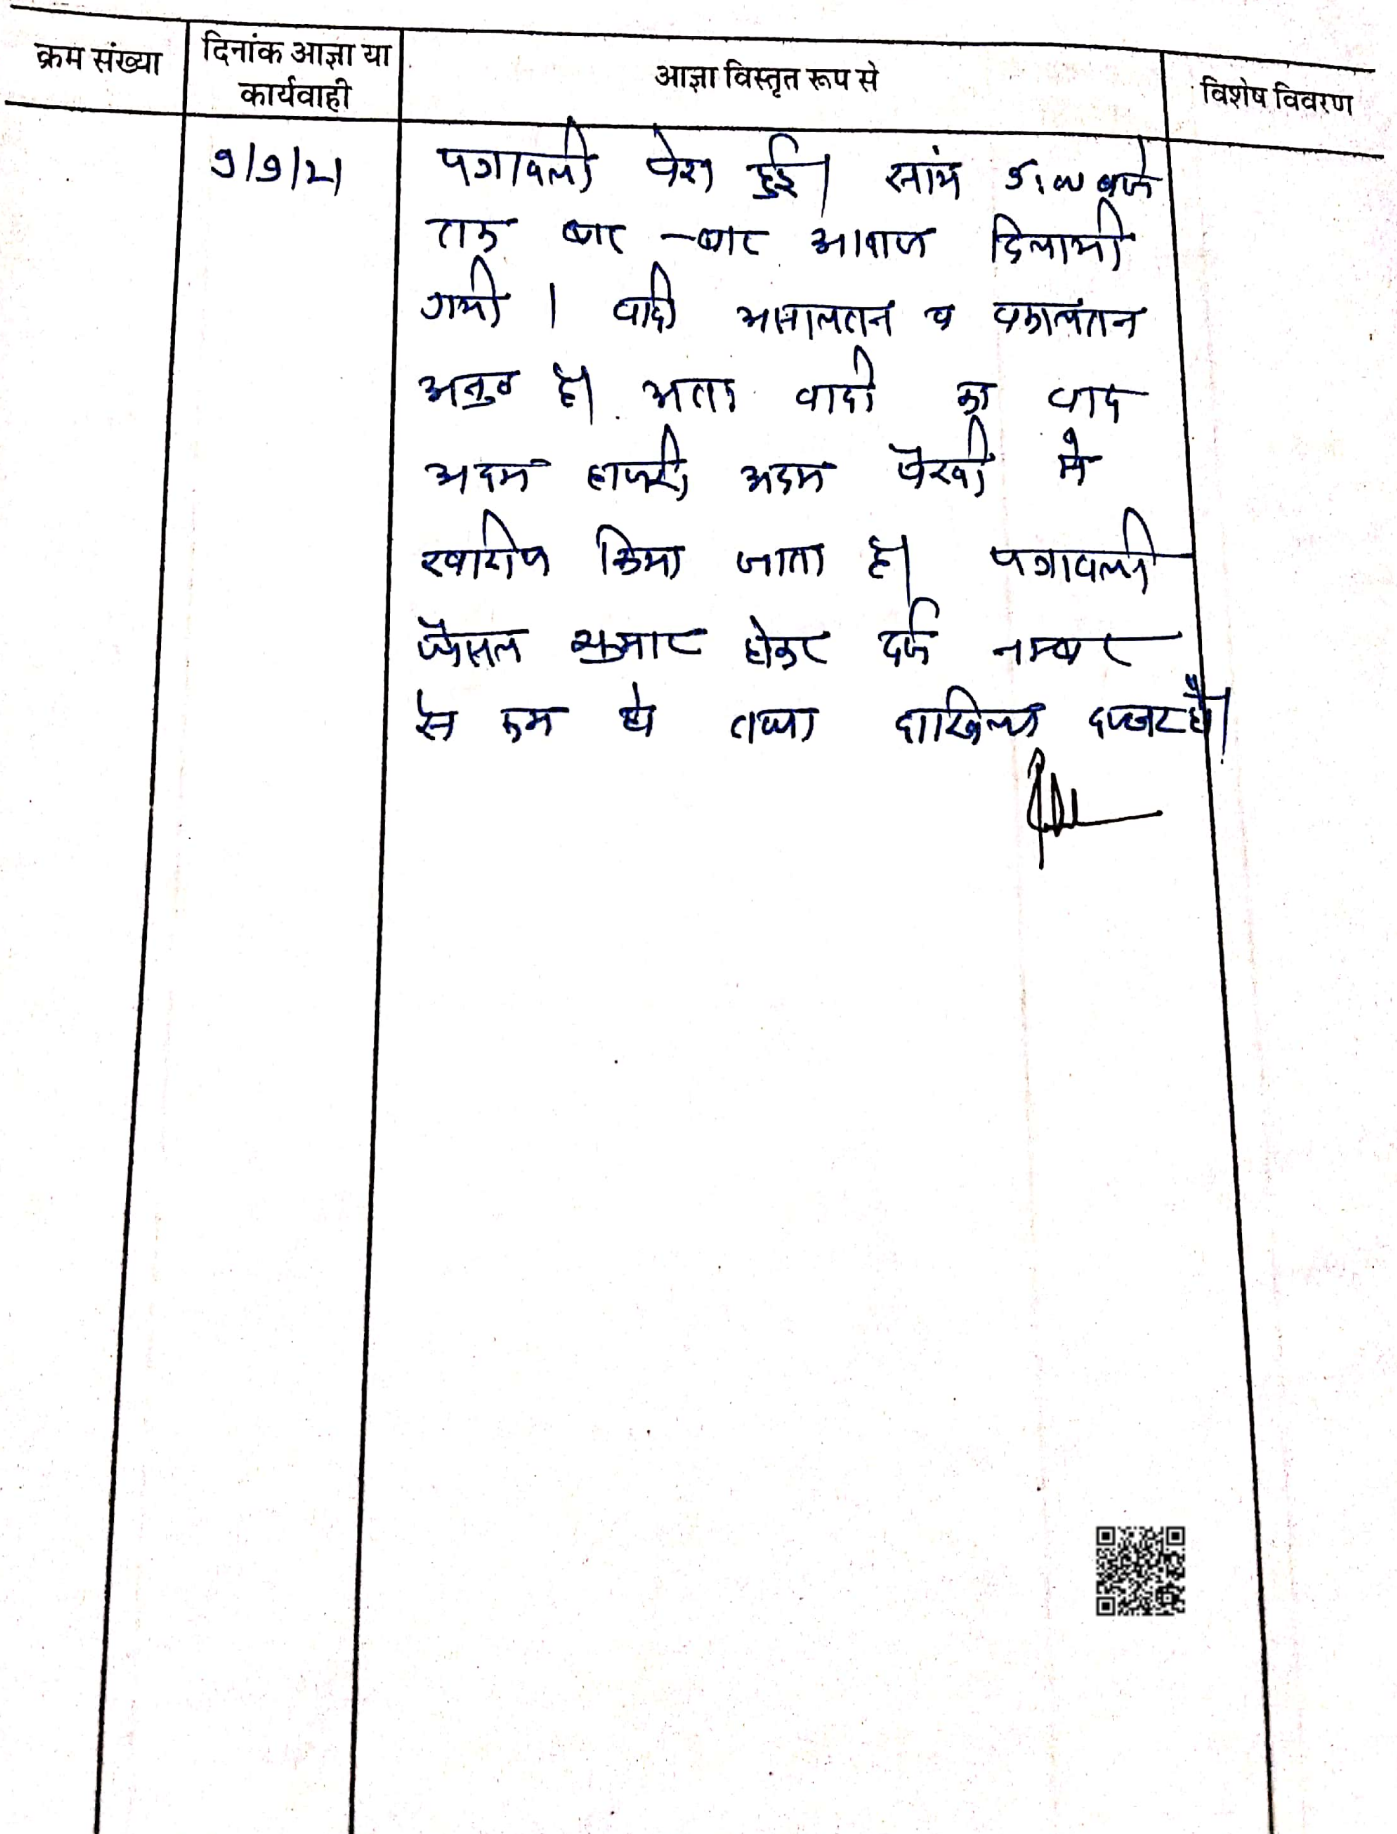 क्रम संख्या
दिनांक आज्ञा या
कार्यवाही
आज्ञा विस्तृत रूप से
विशेष विवरण
9/9/21
पत्रावली पेश हुई। सांय 5:00 बजे
तक बार-बार आवाज दिलायी
गयी । वादी असालतन व वकालतन
अनु० है। अतः वादी का वाद
अदम हाजरी अदम पैरवी में
खारीज किया जाता है। पत्रावली
फैसल शुमार होकर दर्ज नम्बर
से कम हो तथा दाखिल दफ्तर हो।